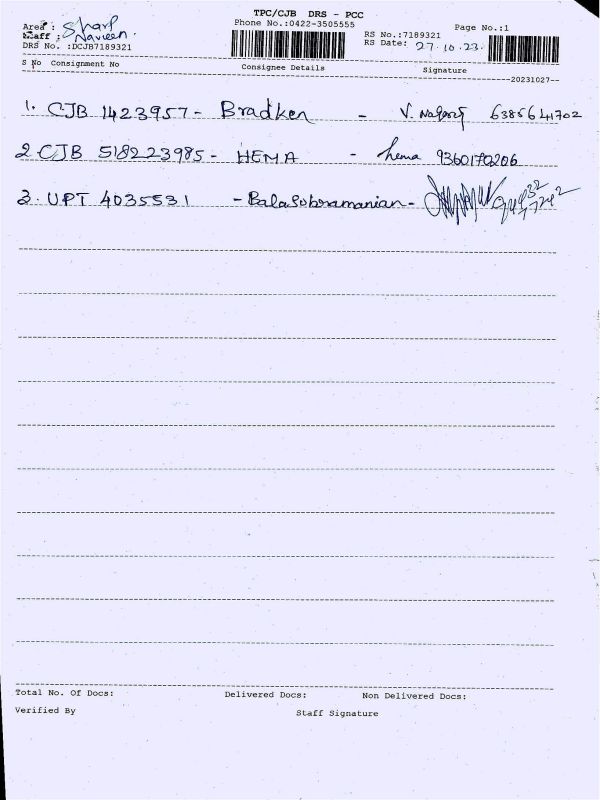 TPC/CJB DRS - PCC
Area : Sharp
Phone No.:0422-3505555
Page No.:1
Staff : Naveen.
RS No.:7189321
DRS No. :DCJB7189321
RS Date: 27.10.23.
S No Consignment No Consignee Details Signature
20231027
1. CJB 1423957 - Bradken - V. Nagaraj 6385641702
2 CJB 518223985 - HEMA - hema 9360170206
3. UPT 4035531 - Balasubramanian -
Total No. Of Docs: Delivered Docs: Non Delivered Docs:
Verified By Staff Signature